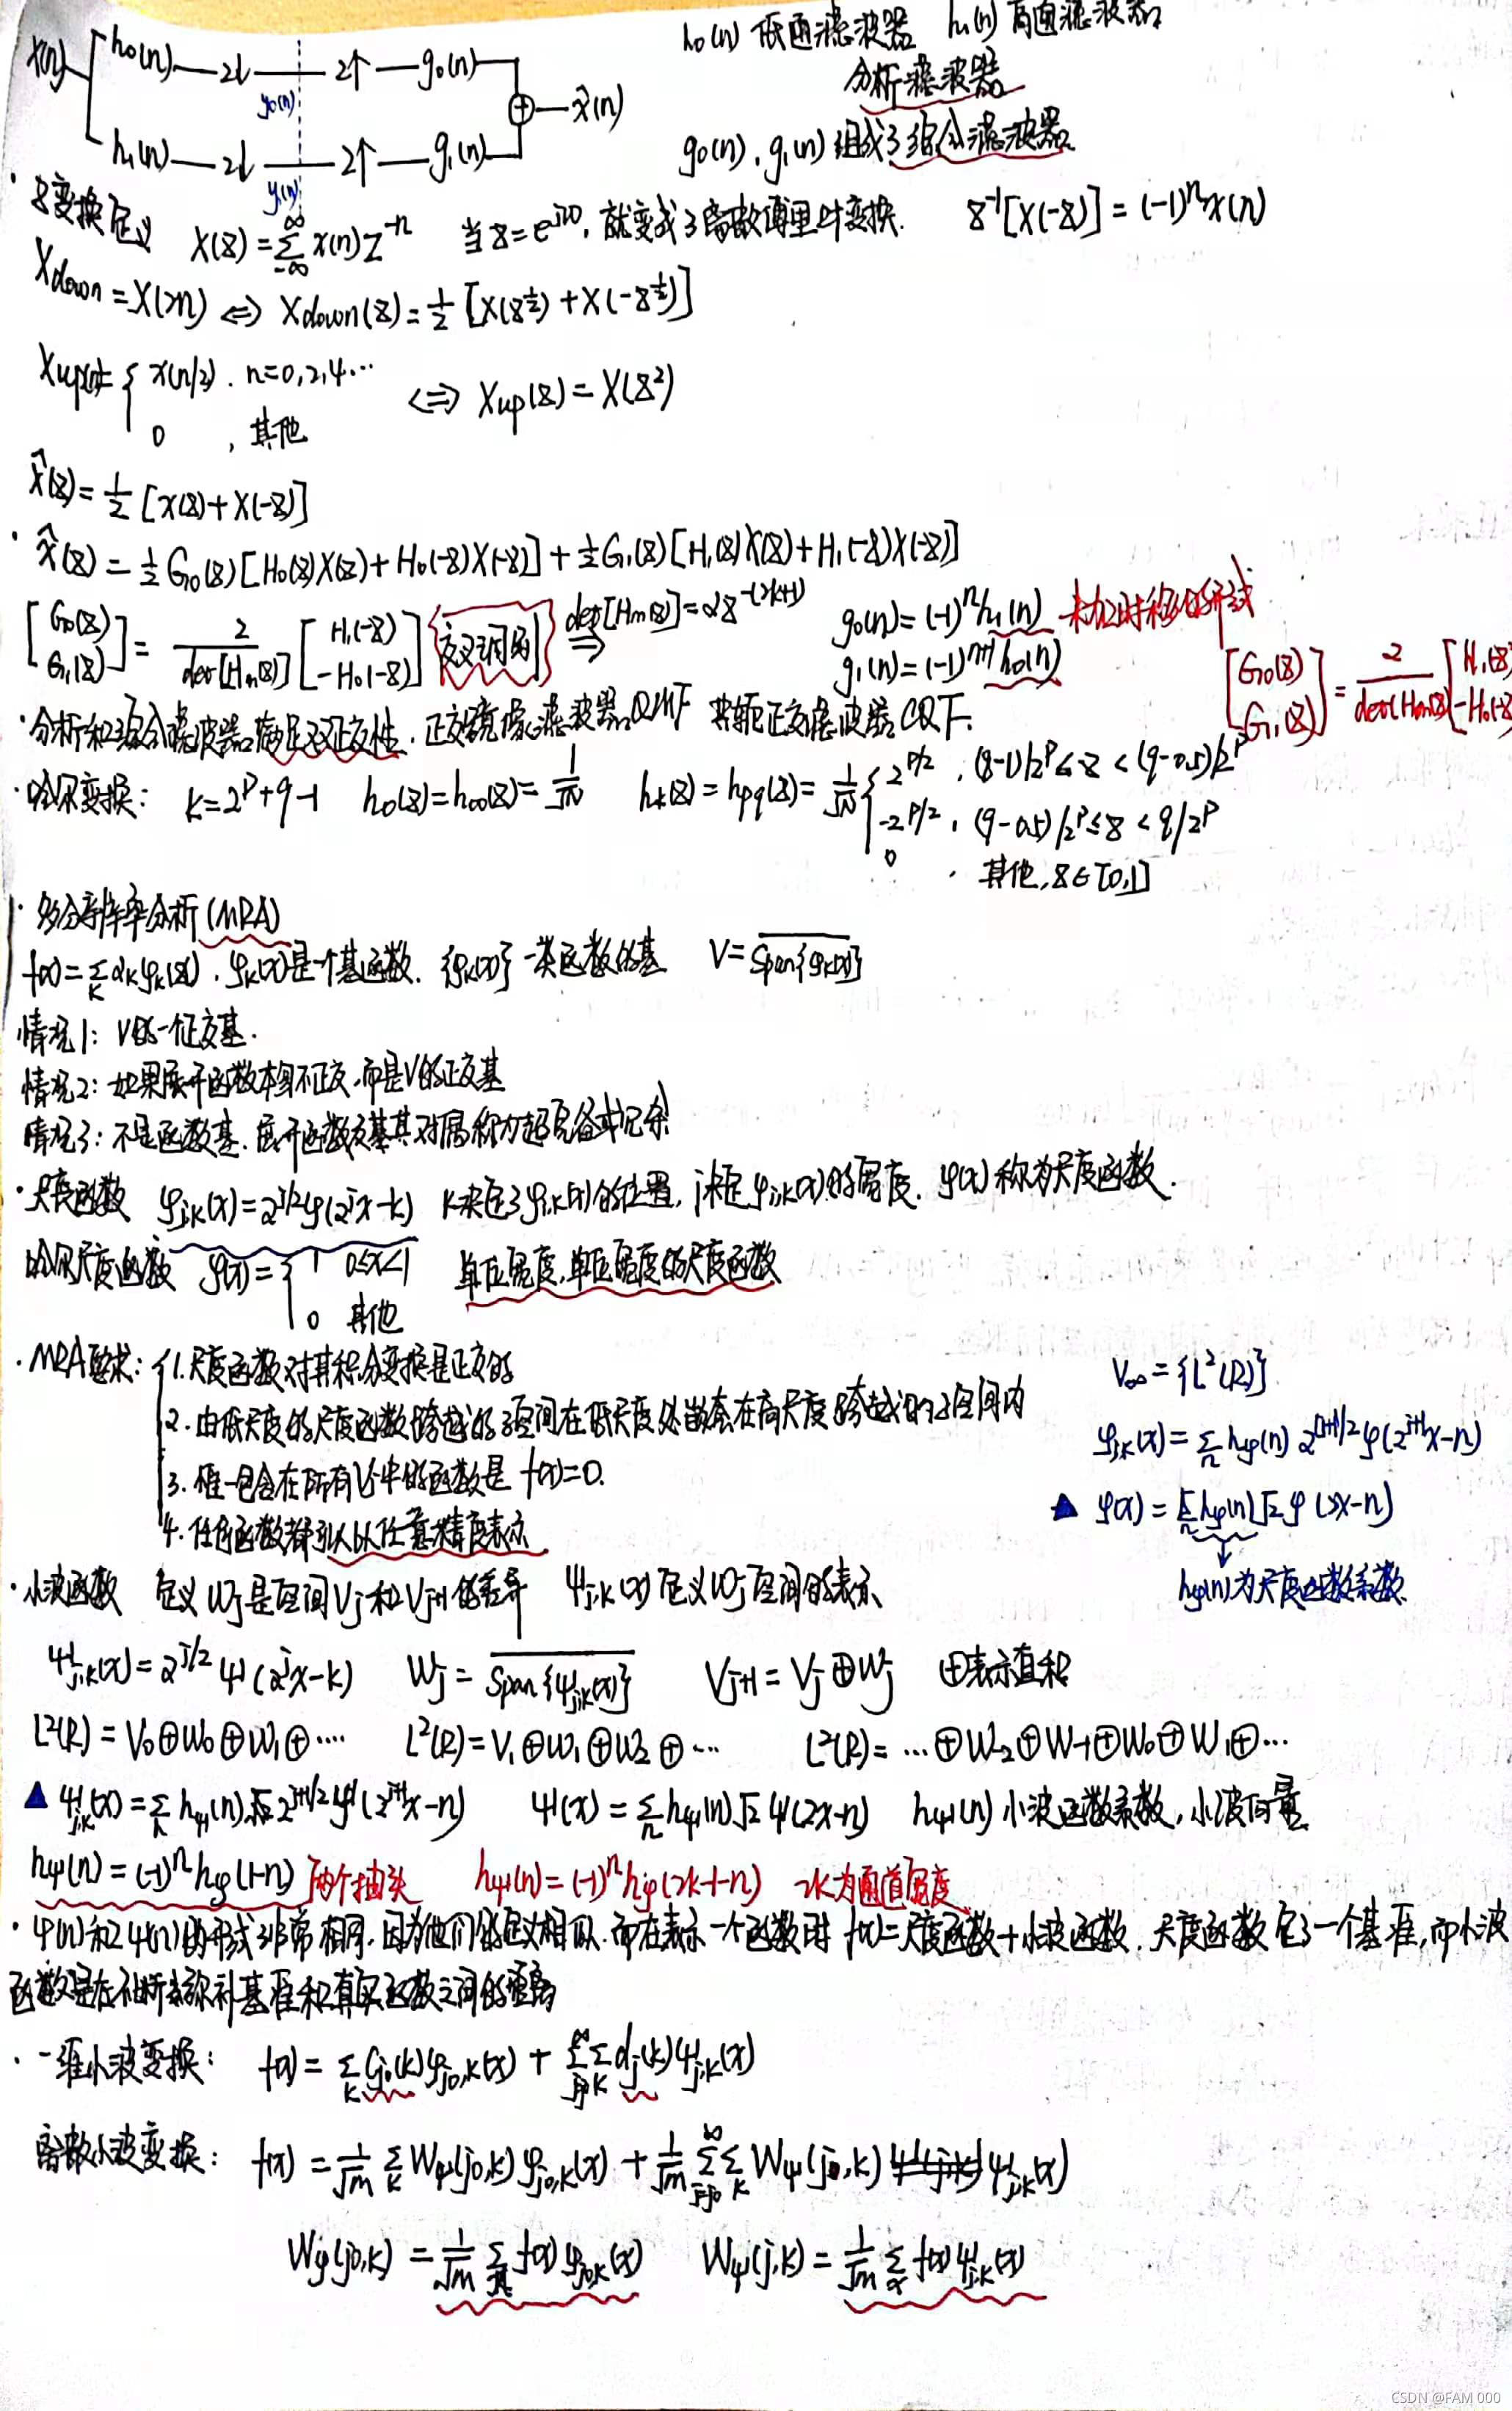 h₀(n) 低通滤波器 h₁(n) 高通滤波器
x(n) h₀(n) — 2↓ — 2↑ — g₀(n)
分析滤波器
y₀(n)
⊕ — x̂(n)
h₁(n) — 2↓ — 2↑ — g₁(n)
g₀(n), g₁(n) 组成了综合滤波器
y₁(n)
·Z变换定义 X(z) = Σ_{-∞}^{∞} x(n) z^{-n} 当z=e^{jω}, 就变成了离散傅里叶变换. z⁻¹[X(-z)] = (-1)ⁿx(n)
Xdown = X(2n) ⇔ Xdown(z) = 1/2 [X(z^{1/2}) + X(-z^{1/2})]
Xup(n) = { x(n/2), n=0,2,4⋯
0 , 其他
⇔ Xup(z) = X(z²)
X̂(z) = 1/2 [X(z) + X(-z)]
· X̂(z) = 1/2 G₀(z) [H₀(z)X(z) + H₀(-z)X(-z)] + 1/2 G₁(z) [H₁(z)X(z) + H₁(-z)X(-z)]
[G₀(z) G₁(z)] = 2/det[Hm(z)] [H₁(-z) -H₀(-z)] 交叉调制 ⇒ det[Hm(z)] = αz^{-(2k+1)}
g₀(n) = (-1)ⁿh₁(n)
g₁(n) = (-1)^{n+1}h₀(n)
[G₀(z) G₁(z)] = 2/det(Hm(z)) [H₁(-z -H₀(-z
·分析和综合滤波器满足双正交性. 正交镜像滤波器QMF 共轭正交滤波器CQF.
·哈尔变换: k=2^p+q-1 h₀(z)=h₀₀(z)=1/√N h_k(z)=h_{pq}(z)=1/√N { 2^{p/2} , (q-1)/2^p ≤ z < (q-0.5)/2^p
-2^{p/2} , (q-0.5)/2^p ≤ z < q/2^p
0 , 其他, z∈[0,1]
·多分辨率分析(MRA)
f(x) = Σ_k α_k φ_k(x). φ_k(x)是一个基函数. {φ_k(x)} 一类函数的基 V = Span{φ_k(x)}
情况1: V的一个正交基.
情况2: 如果展开函数本身不正交,而是V的正交基
情况3: 不是函数基. 展开函数及其对偶称为超完备或冗余
·尺度函数 φ_{j,k}(x) = 2^{j/2}φ(2^j x-k) k决定了φ_{j,k}(x)的位置, j决定φ_{j,k}(x)的宽度. φ(x)称为尺度函数.
哈尔尺度函数 φ(x) = { 1 0≤x<1
0 其他
单位高度,单位宽度的尺度函数
·MRA要求: { 1.尺度函数对其积分变换是正交的
2.由低尺度的尺度函数跨越的子空间在低尺度处嵌套在高尺度跨越的子空间内
3.唯一包含在所有Vj中的函数是 f(x)=0.
4.任何函数都可以以任意精度表示
V∞ = {L²(R)}
φ_{j,k}(x) = Σ_n hφ(n) 2^{(j+1)/2} φ(2^{j+1}x-n)
▲ φ(x) = Σ_n hφ(n)√2 φ(2x-n)
hφ(n)为尺度函数系数
·小波函数 定义Wj是空间Vj和Vj+1的差异 ψ_{j,k}(x)定义Wj空间的表示
ψ_{j,k}(x) = 2^{j/2} ψ(2^j x-k) Wj = Span{ψ_{j,k}(x)} Vj+1 = Vj⊕Wj ⊕表示直和
L²(R) = V₀⊕W₀⊕W₁⊕⋯ L²(R) = V₁⊕W₁⊕W₂⊕⋯ L²(R) = ⋯⊕W₋₂⊕W₋₁⊕W₀⊕W₁⊕⋯
▲ ψ_{j,k}(x) = Σ_n hψ(n)√2 2^{j+1/2} ψ(2^{j+1}x-n) ψ(x) = Σ_n hψ(n)√2 ψ(2x-n) hψ(n)小波函数系数, 小波向量
hψ(n) = (-1)ⁿhφ(1-n) 两个抽头 hψ(n) = (-1)ⁿhφ(2k-1-n) 2k为通道宽度
·φ(x)和ψ(x)的形式非常相同. 因为他们的定义相似. 而在表示一个函数时 f(x)=尺度函数+小波函数. 尺度函数定了一个基准,而小波
函数是在不断弥补基准和真实函数之间的距离
·一维小波变换: f(x) = Σ_k C_{j0}(k)φ_{j0,k}(x) + Σ_{j=j0}^{∞} Σ_k dj(k)ψ_{j,k}(x)
离散小波变换: f(x) = 1/√m Σ_k Wφ(j0,k)φ_{j0,k}(x) + 1/√m Σ_{j=j0}^{∞} Σ_k Wψ(j,k) ψ_{j,k}(x)
Wφ(j0,k) = 1/√m Σ_x f(x)φ_{j0,k}(x) Wψ(j,k) = 1/√m Σ_x f(x)ψ_{j,k}(x)
CSDN @FAM 000